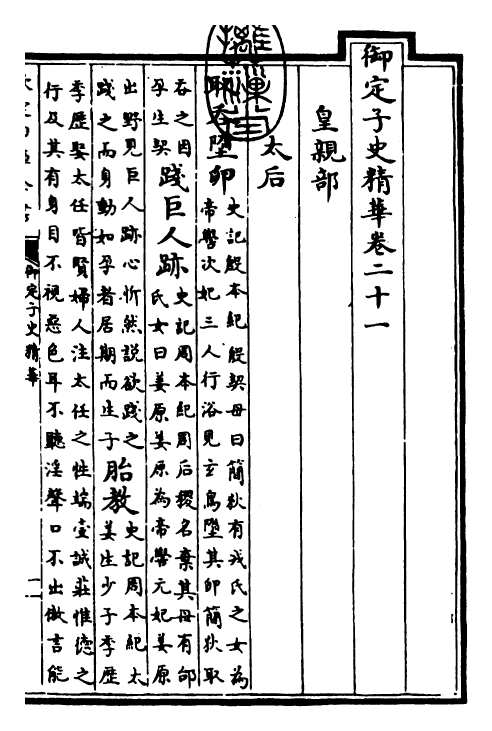 御定子史精華卷二十一
皇親部
太后
取吞墮卵
史記殷本紀殷契母曰簡狄有娀氏之女為
帝嚳次妃三人行浴見玄鳥墮其卵簡狄取
吞之因
孕生契
踐巨人跡
史記周本紀周后稷名棄其母有邰
氏女曰姜原姜原為帝嚳元妃姜原
出野見巨人跡心忻然說欲踐之
踐之而身動如孕者居期而生子
胎教
史記周本紀太
姜生少子季歷
季歷娶太任皆賢婦人注太任之性端壹誠莊惟德之
行及其有身目不視惡色耳不聽淫聲口不出傲言能
御定子史精華